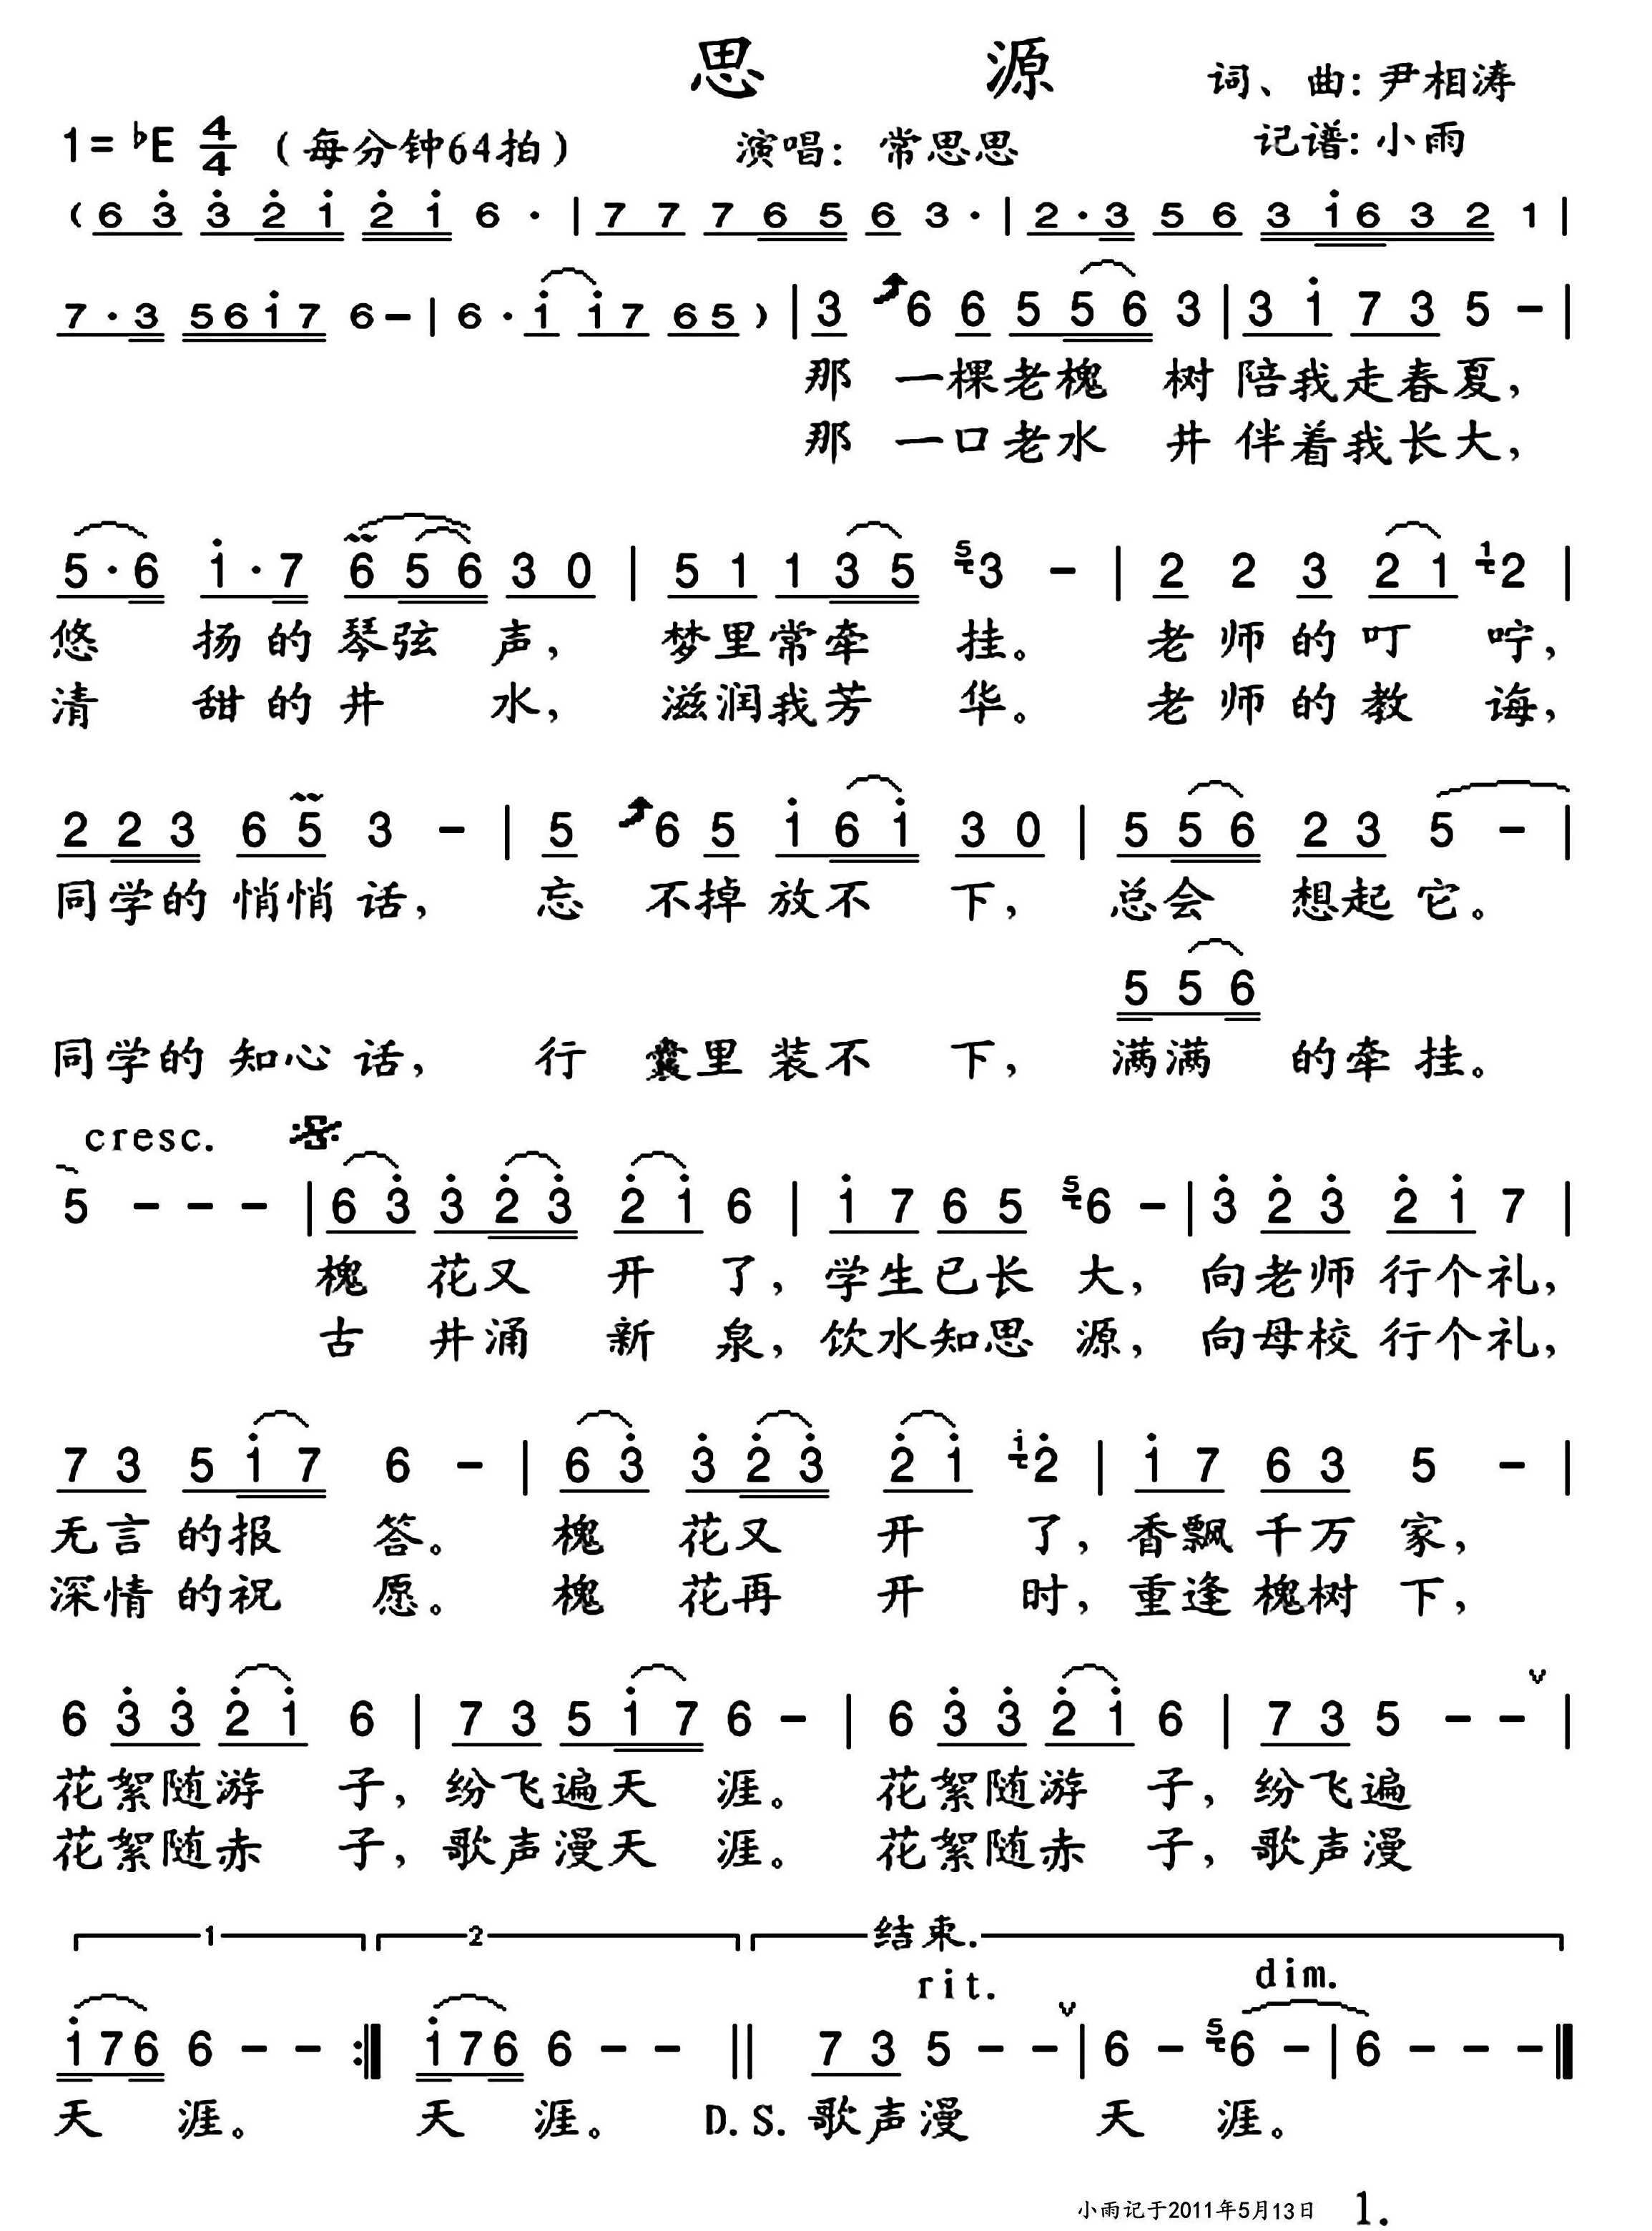 思 源
词、曲:尹相涛
1=♭E 4/4 (每分钟64拍) 演唱: 常思思 记谱:小雨
(6 3 3 2 1 2 1 6 · | 7 7 7 6 5 6 3 · | 2 · 3 5 6 3 1 6 3 2 1 |
7 · 3 5 6 1 7 6 – | 6 · 1 1 7 6 5 ) | 3 6 6 5 5 6 3 | 3 1 7 3 5 – |
那 一棵老槐 树 陪我走春夏,
那 一口老水 井 伴着我长大,
5 · 6 1 · 7 6 5 6 3 0 | 5 1 1 3 5 5 3 – | 2 2 3 2 1 1 2 |
悠 扬的琴弦 声, 梦里常牵 挂。 老师的叮 咛,
清 甜的井 水, 滋润我芳 华。 老师的教 诲,
2 2 3 6 5 3 – | 5 6 5 1 6 1 3 0 | 5 5 6 2 3 5 – |
同学的悄悄话, 忘 不掉放不 下, 总会 想起它。
5 5 6
同学的知心话, 行 囊里装不 下, 满满 的牵挂。
cresc.
5 – – – | 6 3 3 2 3 2 1 6 | 1 7 6 5 5 6 – | 3 2 3 2 1 7 |
槐 花又 开 了, 学生已长 大, 向老师行个礼,
古 井涌 新 泉, 饮水知思 源, 向母校行个礼,
7 3 5 1 7 6 – | 6 3 3 2 3 2 1 1 2 | 1 7 6 3 5 – |
无言的报 答。 槐 花又 开 了, 香飘千万 家,
深情的祝 愿。 槐 花再 开 时, 重逢槐树 下,
6 3 3 2 1 6 | 7 3 5 1 7 6 – | 6 3 3 2 1 6 | 7 3 5 – – v |
花絮随游 子, 纷飞遍天 涯。 花絮随游 子, 纷飞遍
花絮随赤 子, 歌声漫天 涯。 花絮随赤 子, 歌声漫
1 2 结束.
rit. dim.
1 7 6 6 – – :|| 1 7 6 6 – – || 7 3 5 – – v | 6 – 5 6 – | 6 – – – ||
天 涯。 天 涯。 D.S. 歌声漫 天 涯。
小雨记于2011年5月13日 1.